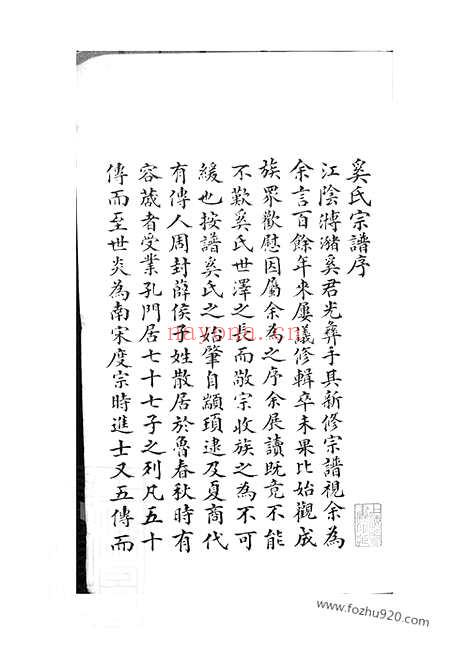 奚氏宗譜序
江陰溥潴奚君光彝手其新修宗譜視余為
余言百餘年來屢議修輯卒未果比始觀成
族眾歡慰因屬余為之序余展讀既竟不能
不歎奚氏世澤之長而敬宗收族之為不可
緩也按譜奚氏之始肇自顓頊逮及夏商代
有傳人周封薛侯子姓散居於魯春秋時有
容蒧者受業孔門居七十七子之列凡五十
傳而至世炎為南宋度宗時進士又五傳而
nayona.cn
www.fozhu920.com